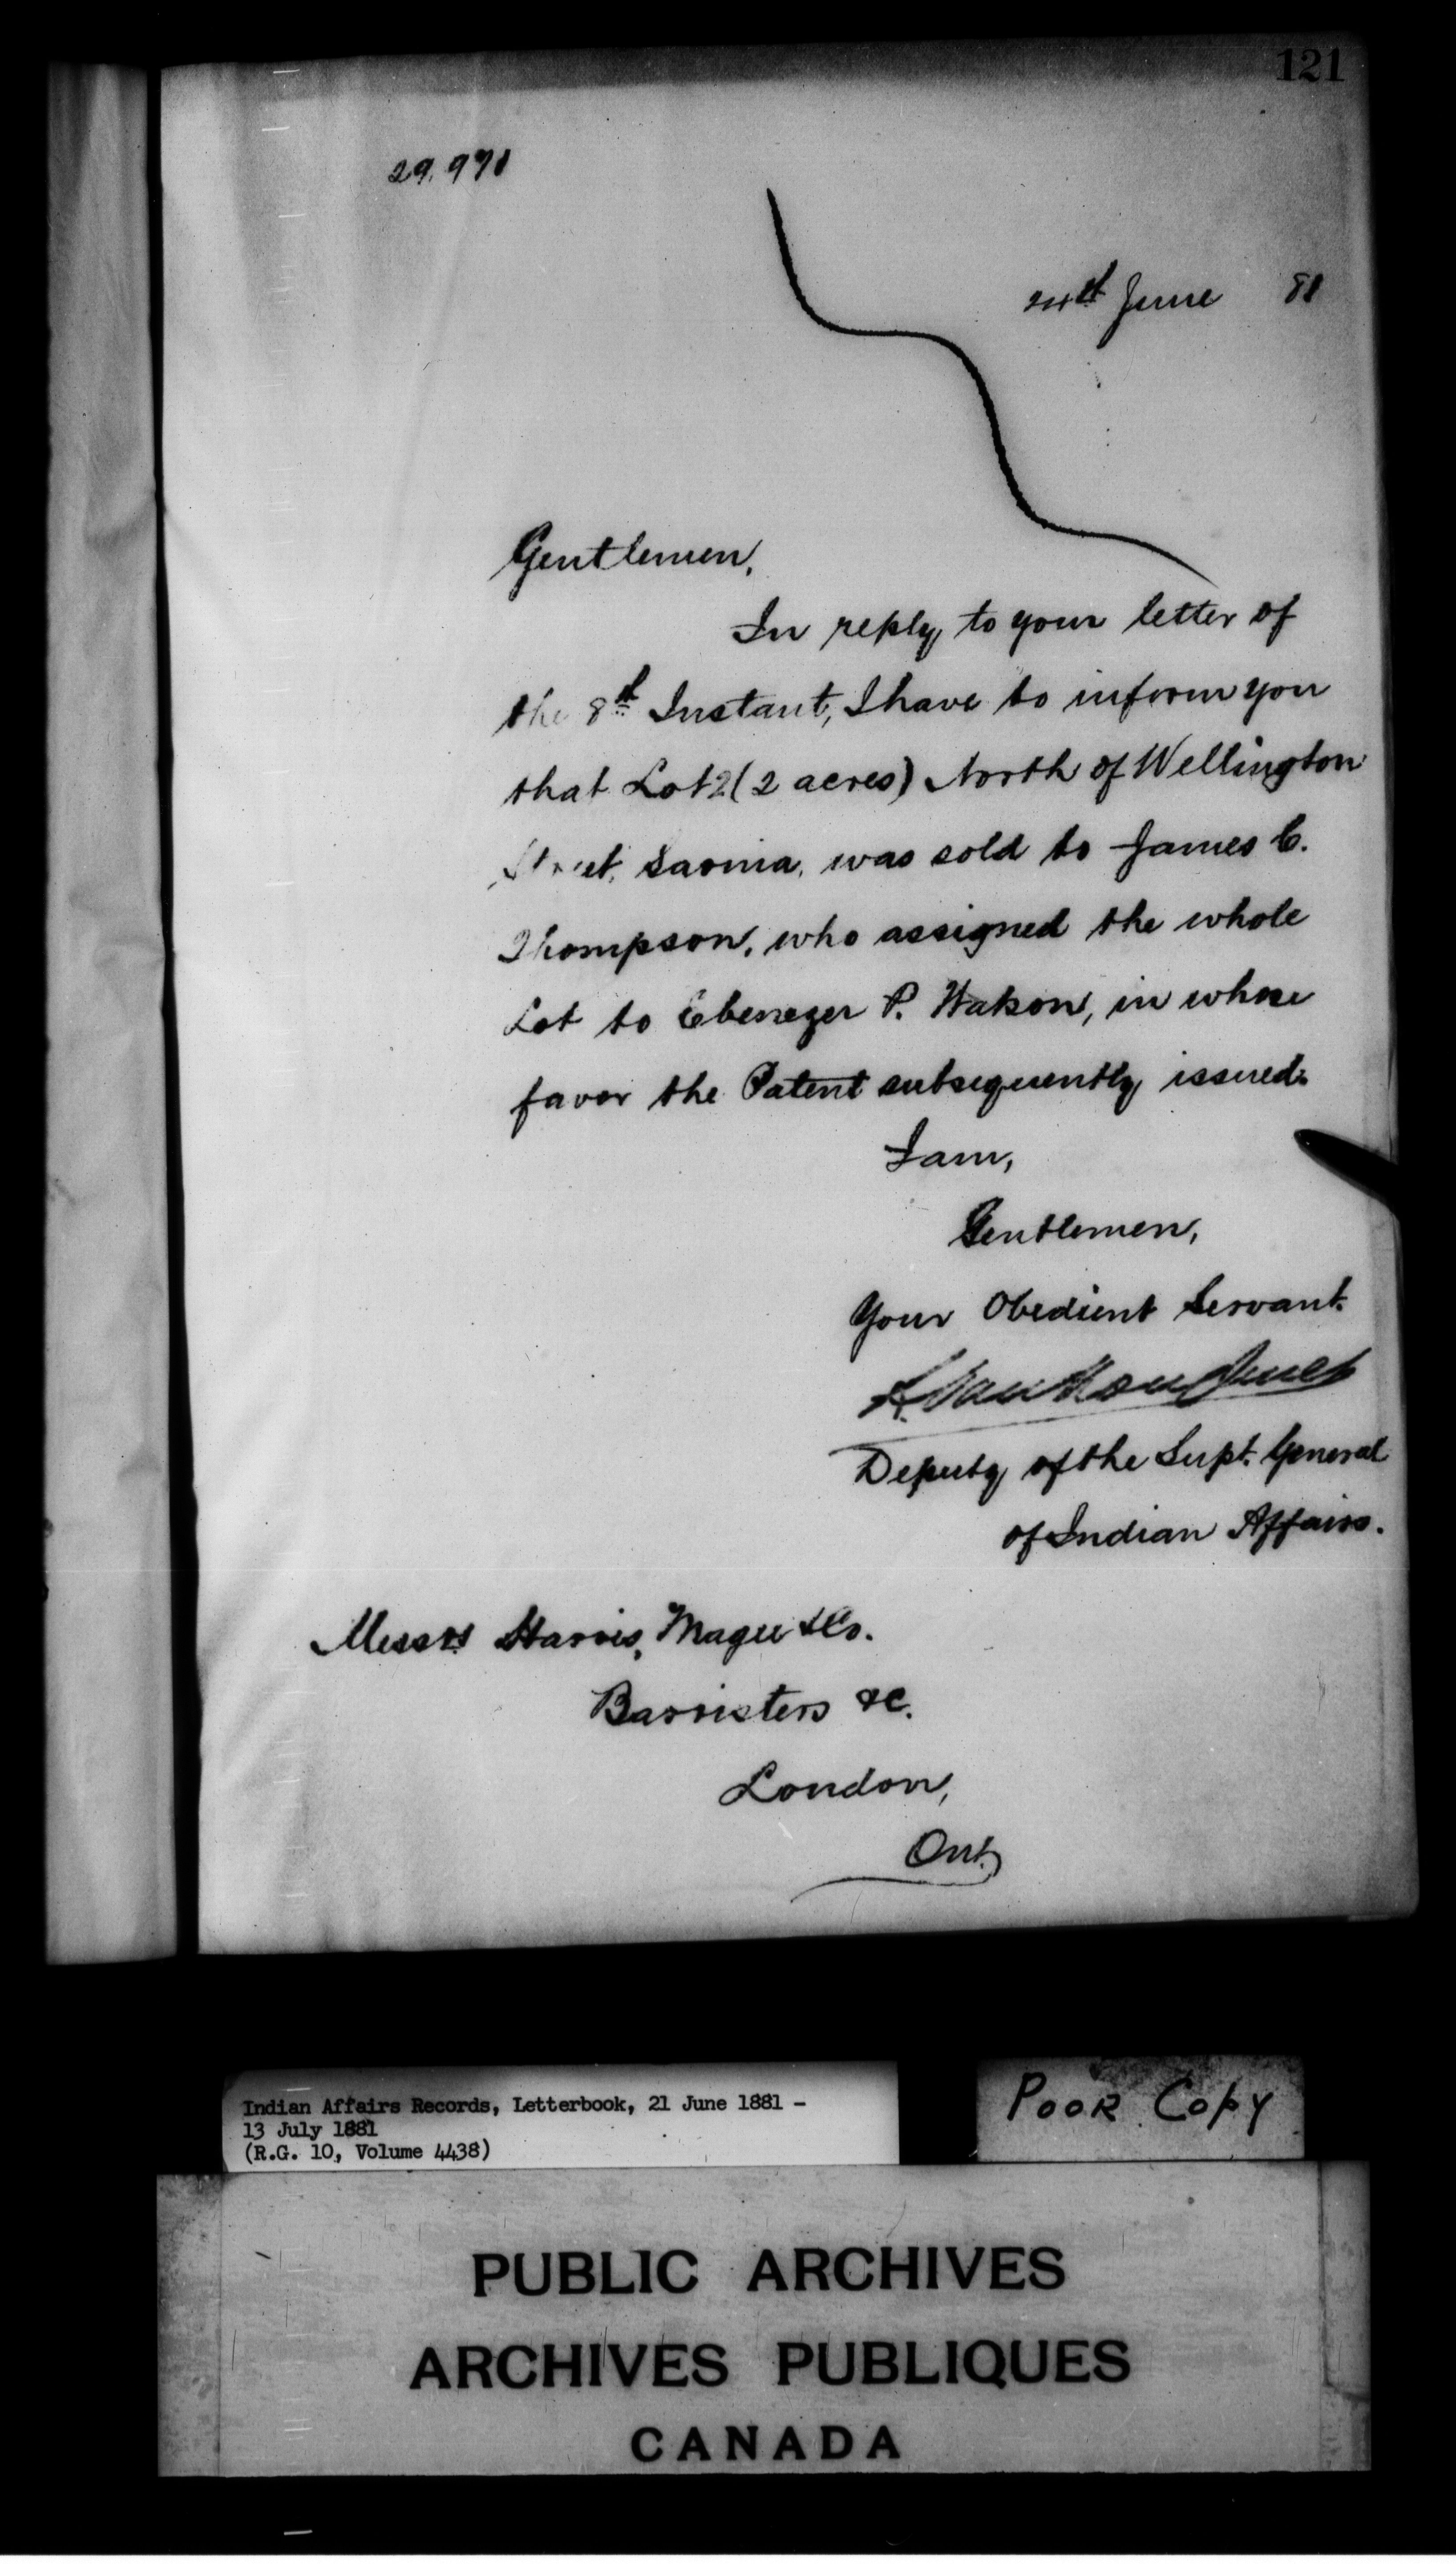 121
29.971
24th June 81
Gentlemen,
In reply to your letter of
the 8th Instant, I have to inform you
that Lot 2 (2 acres) North of Wellington
Street, Sarnia, was sold to James C.
Thompson, who assigned the whole
Lot to Ebenezer P. Watson, in whose
favor the Patent subsequently issued.
I am,
Gentlemen,
Your Obedient Servant.
L. VanKoughnet
Deputy of the Supt. General
of Indian Affairs.
Messrs Harris, Magee & Co.
Barristers &c.
London,
Ont.
Indian Affairs Records, Letterbook, 21 June 1881 -
13 July 1881
(R.G. 10, Volume 4438)
POOR COPY
PUBLIC ARCHIVES
ARCHIVES PUBLIQUES
CANADA